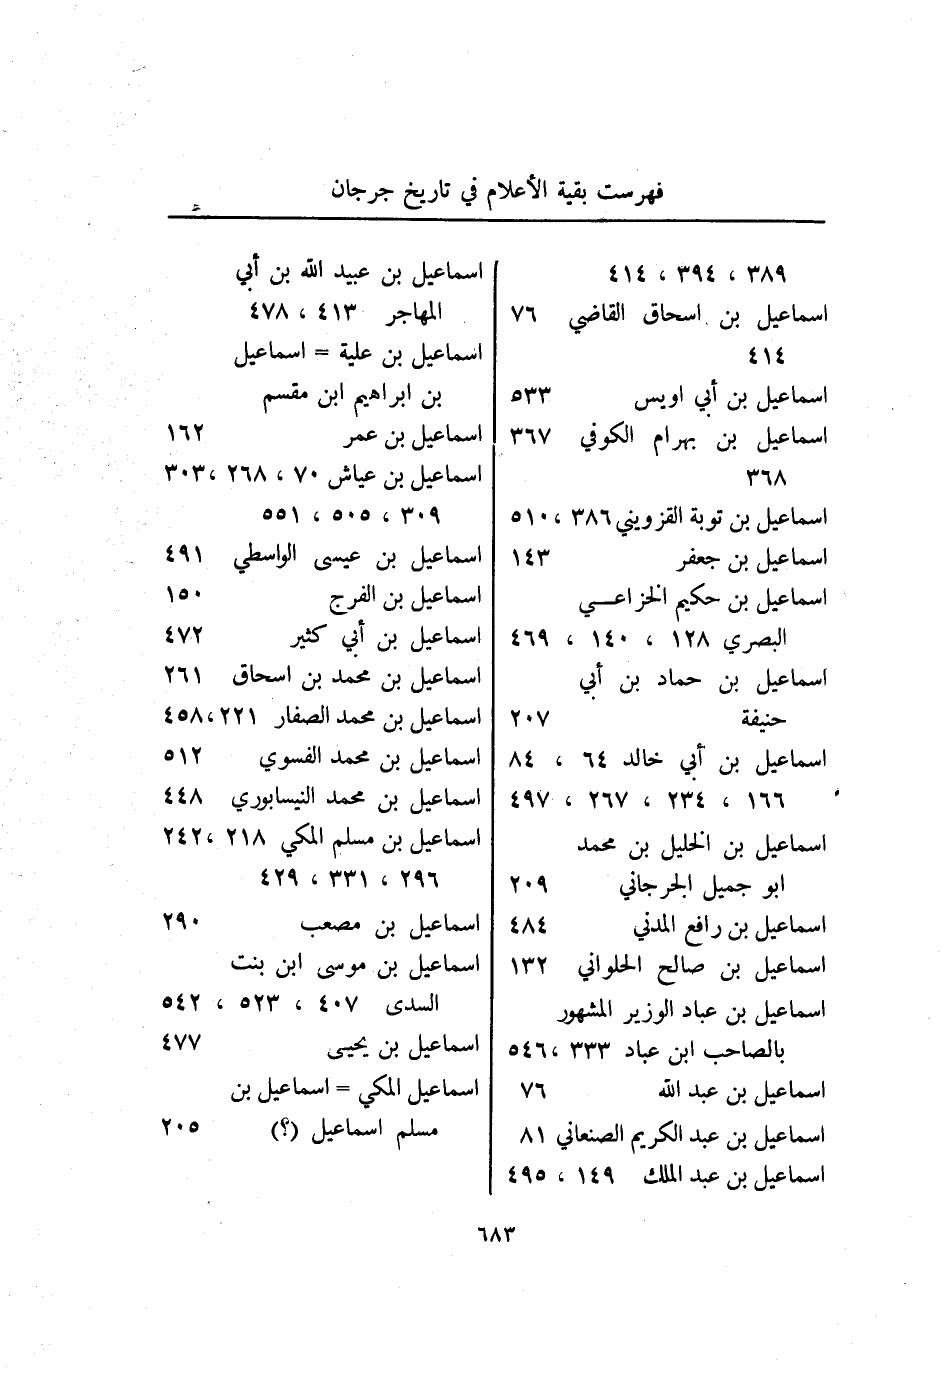 فهرست بقية الأعلام في تاريخ جرجان
٣٨٩ ، ٣٩٤ ، ٤١٤
اسماعيل بن اسحاق القاضي ٧٦
٤١٤
اسماعيل بن أبي اويس ٥٣٣
اسماعيل بن بهرام الكوفي ٣٦٧
٣٦٨
اسماعيل بن توبة القزويني ٣٨٦ ، ٥١٠
اسماعيل بن جعفر ١٤٣
اسماعيل بن حكيم الخزاعــي
البصري ١٢٨ ، ١٤٠ ، ٤٦٩
اسماعيل بن حماد بن أبي
حنيفة ٢٠٧
اسماعيل بن أبي خالد ٦٤ ، ٨٤
١٦٦ ، ٢٣٤ ، ٢٦٧ ، ٤٩٧
اسماعيل بن الخليل بن محمد
ابو جميل الجرجاني ٢٠٩
اسماعيل بن رافع المدني ٤٨٤
اسماعيل بن صالح الحلواني ١٣٢
اسماعيل بن عباد الوزير المشهور
بالصاحب ابن عباد ٣٣٣ ، ٥٤٦
اسماعيل بن عبد الله ٧٦
اسماعيل بن عبد الكريم الصنعاني ٨١
اسماعيل بن عبد الملك ١٤٩ ، ٤٩٥
اسماعيل بن عبيد الله بن أبي
المهاجر ٤١٣ ، ٤٧٨
اسماعيل بن علية = اسماعيل
بن ابراهيم ابن مقسم
اسماعيل بن عمر ١٦٢
اسماعيل بن عياش ٧٠ ، ٢٦٨ ، ٣٠٣
٣٠٩ ، ٥٠٥ ، ٥٥١
اسماعيل بن عيسى الواسطي ٤٩١
اسماعيل بن الفرج ١٥٠
اسماعيل بن أبي كثير ٤٧٢
اسماعيل بن محمد بن اسحاق ٢٦١
اسماعيل بن محمد الصفار ٢٢١ ، ٤٥٨
اسماعيل بن محمد الفسوي ٥١٢
اسماعيل بن محمد النيسابوري ٤٤٨
اسماعيل بن مسلم المكي ٢١٨ ، ٢٤٢
٢٩٦ ، ٣٣١ ، ٤٢٩
اسماعيل بن مصعب ٢٩٠
اسماعيل بن موسى ابن بنت
السدى ٤٠٧ ، ٥٢٣ ، ٥٤٢
اسماعيل بن يحيى ٤٧٧
اسماعيل المكي = اسماعيل بن
مسلم اسماعيل (؟) ٢٠٥
٦٨٣